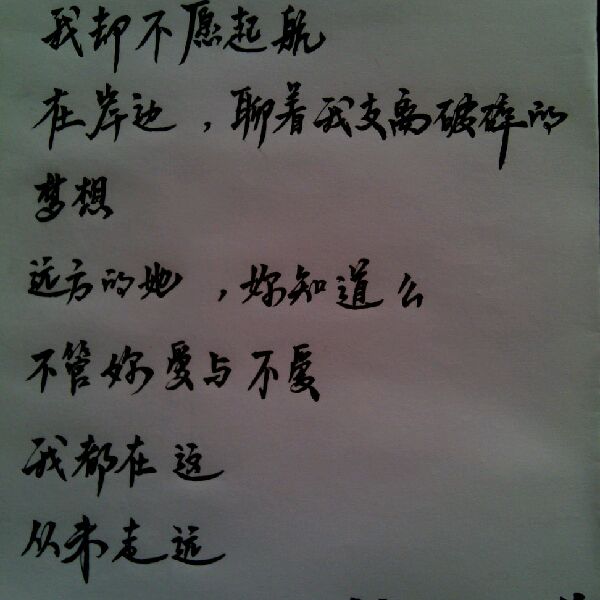 我却不愿起航
在岸边，聊着我支离破碎的
梦想
远方的她，妳知道么
不管妳爱与不爱
我都在这
从未走远